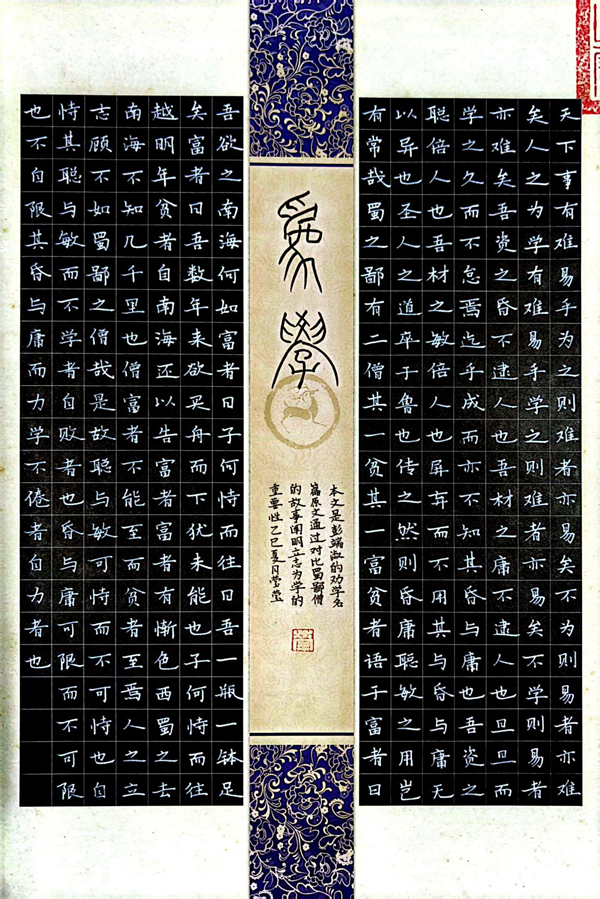 爲學
天下事有难易乎为之则难者亦易矣不为则易者亦难
矣人之为学有难易乎学之则难者亦易矣不学则易者
亦难矣吾资之昏不逮人也吾材之庸不逮人也旦旦而
学之久而不怠焉迄乎成而亦不知其昏与庸也吾资之
聪倍人也吾材之敏倍人也屏弃而不用其与昏与庸无
以异也圣人之道卒于鲁也传之然则昏庸聪敏之用岂
有常哉蜀之鄙有二僧其一贫其一富贫者语于富者曰
吾欲之南海何如富者曰子何恃而往曰吾一瓶一钵足
矣富者曰吾数年来欲买舟而下犹未能也子何恃而往
越明年贫者自南海还以告富者富者有惭色西蜀之去
南海不知几千里也僧富者不能至而贫者至焉人之立
志顾不如蜀鄙之僧哉是故聪与敏可恃而不可恃也自
恃其聪与敏而不学者自败者也昏与庸可限而不可限
也不自限其昏与庸而力学不倦者自力者也
本文是彭端淑的劝学名
篇原文通过对比蜀鄙僧
的故事阐明立志为学的
重要性乙巳夏月莹莹